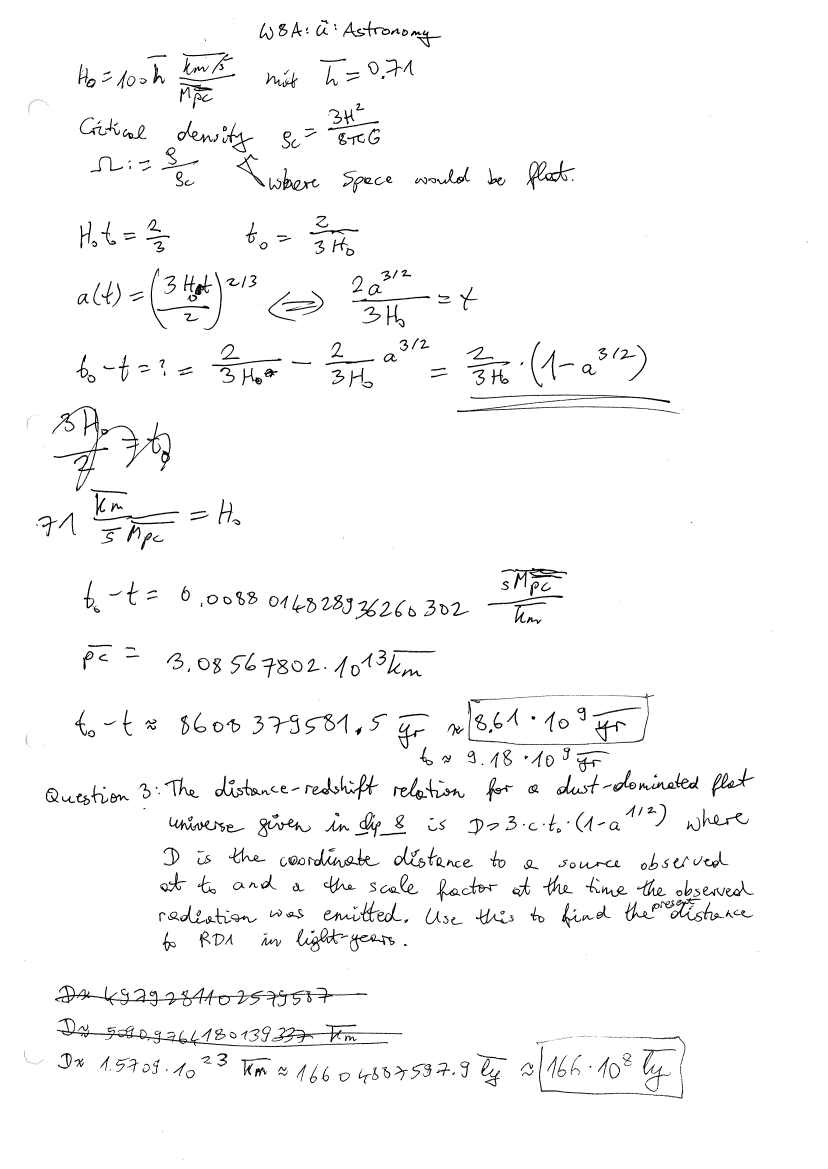 W8A: ü: Astronomy
H₀ = 100 h̅ km/s / Mpc mit h̅ = 0.71
Critical density ρc = 3H² / 8πG
Ω := ρ / ρc where space would be flat.
H₀t₀ = 2/3 t₀ = 2 / 3H₀
a(t) = (3H₀t / 2)^2/3 ⟺ 2a^3/2 / 3H₀ = t
t₀ - t = ? = 2 / 3H₀ - 2 / 3H₀ a^3/2 = 2 / 3H₀ · (1 - a^3/2)
71 km / s Mpc = H₀
t₀ - t = 0.0088014828936260302 s Mpc / km
pc = 3.08567802 · 10^13 km
t₀ - t ≈ 8608379581.5 yr ≈ 8.61 · 10^9 yr
t₀ ≈ 9.18 · 10^9 yr
Question 3: The distance-redshift relation for a dust-dominated flat
universe given in clip 8 is D = 3·c·t₀·(1-a^1/2) where
D is the coordinate distance to a source observed
at t₀ and a the scale factor at the time the observed
radiation was emitted. Use this to find the present distance
to RD1 in light-years.
D ≈ 49792841102579587
D ≈ 5090.9764180139337 km
D ≈ 1.5709 · 10^23 km ≈ 16604887597.9 ly ≈ 166 · 10^8 ly